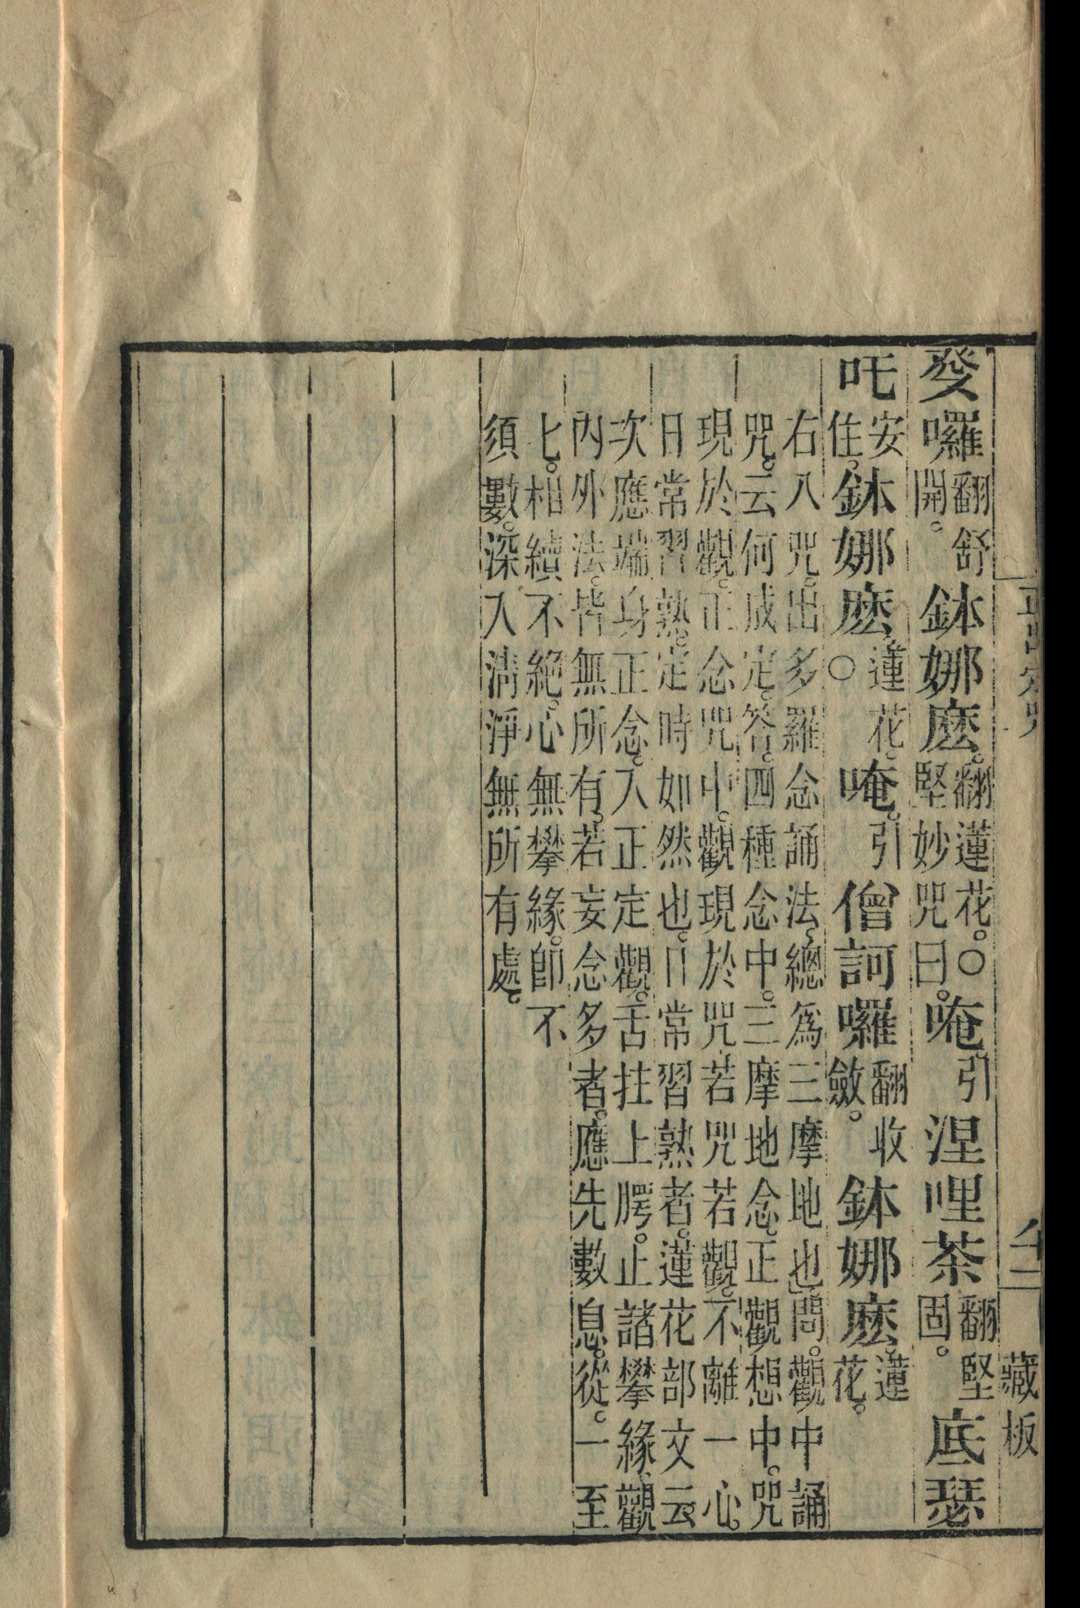 藏板
發囉翻舒開。鉢娜麽。翻蓮花。○堅妙咒曰。唵引涅哩茶翻堅固。底瑟
吒安住。鉢娜麽。蓮花。○唵。引僧訶囉翻收斂。鉢娜麽。蓮花。
右八咒。出多羅念誦法。總爲三摩地也。問。觀中誦
咒。云何成定。答。四種念中。三摩地念。正觀想中。咒
現於觀。正念咒中。觀現於咒。若咒若觀。不離一心。
日常習熟。定時如然也。日常習熟者。蓮花部文云
次應端身正念。入正定觀。舌拄上腭。止諸攀緣。觀
內外法。皆無所有。若妄念多者。應先數息。從。一至
七。相續不絕。心無攀緣。卽不
須數。深入清淨無所有處。